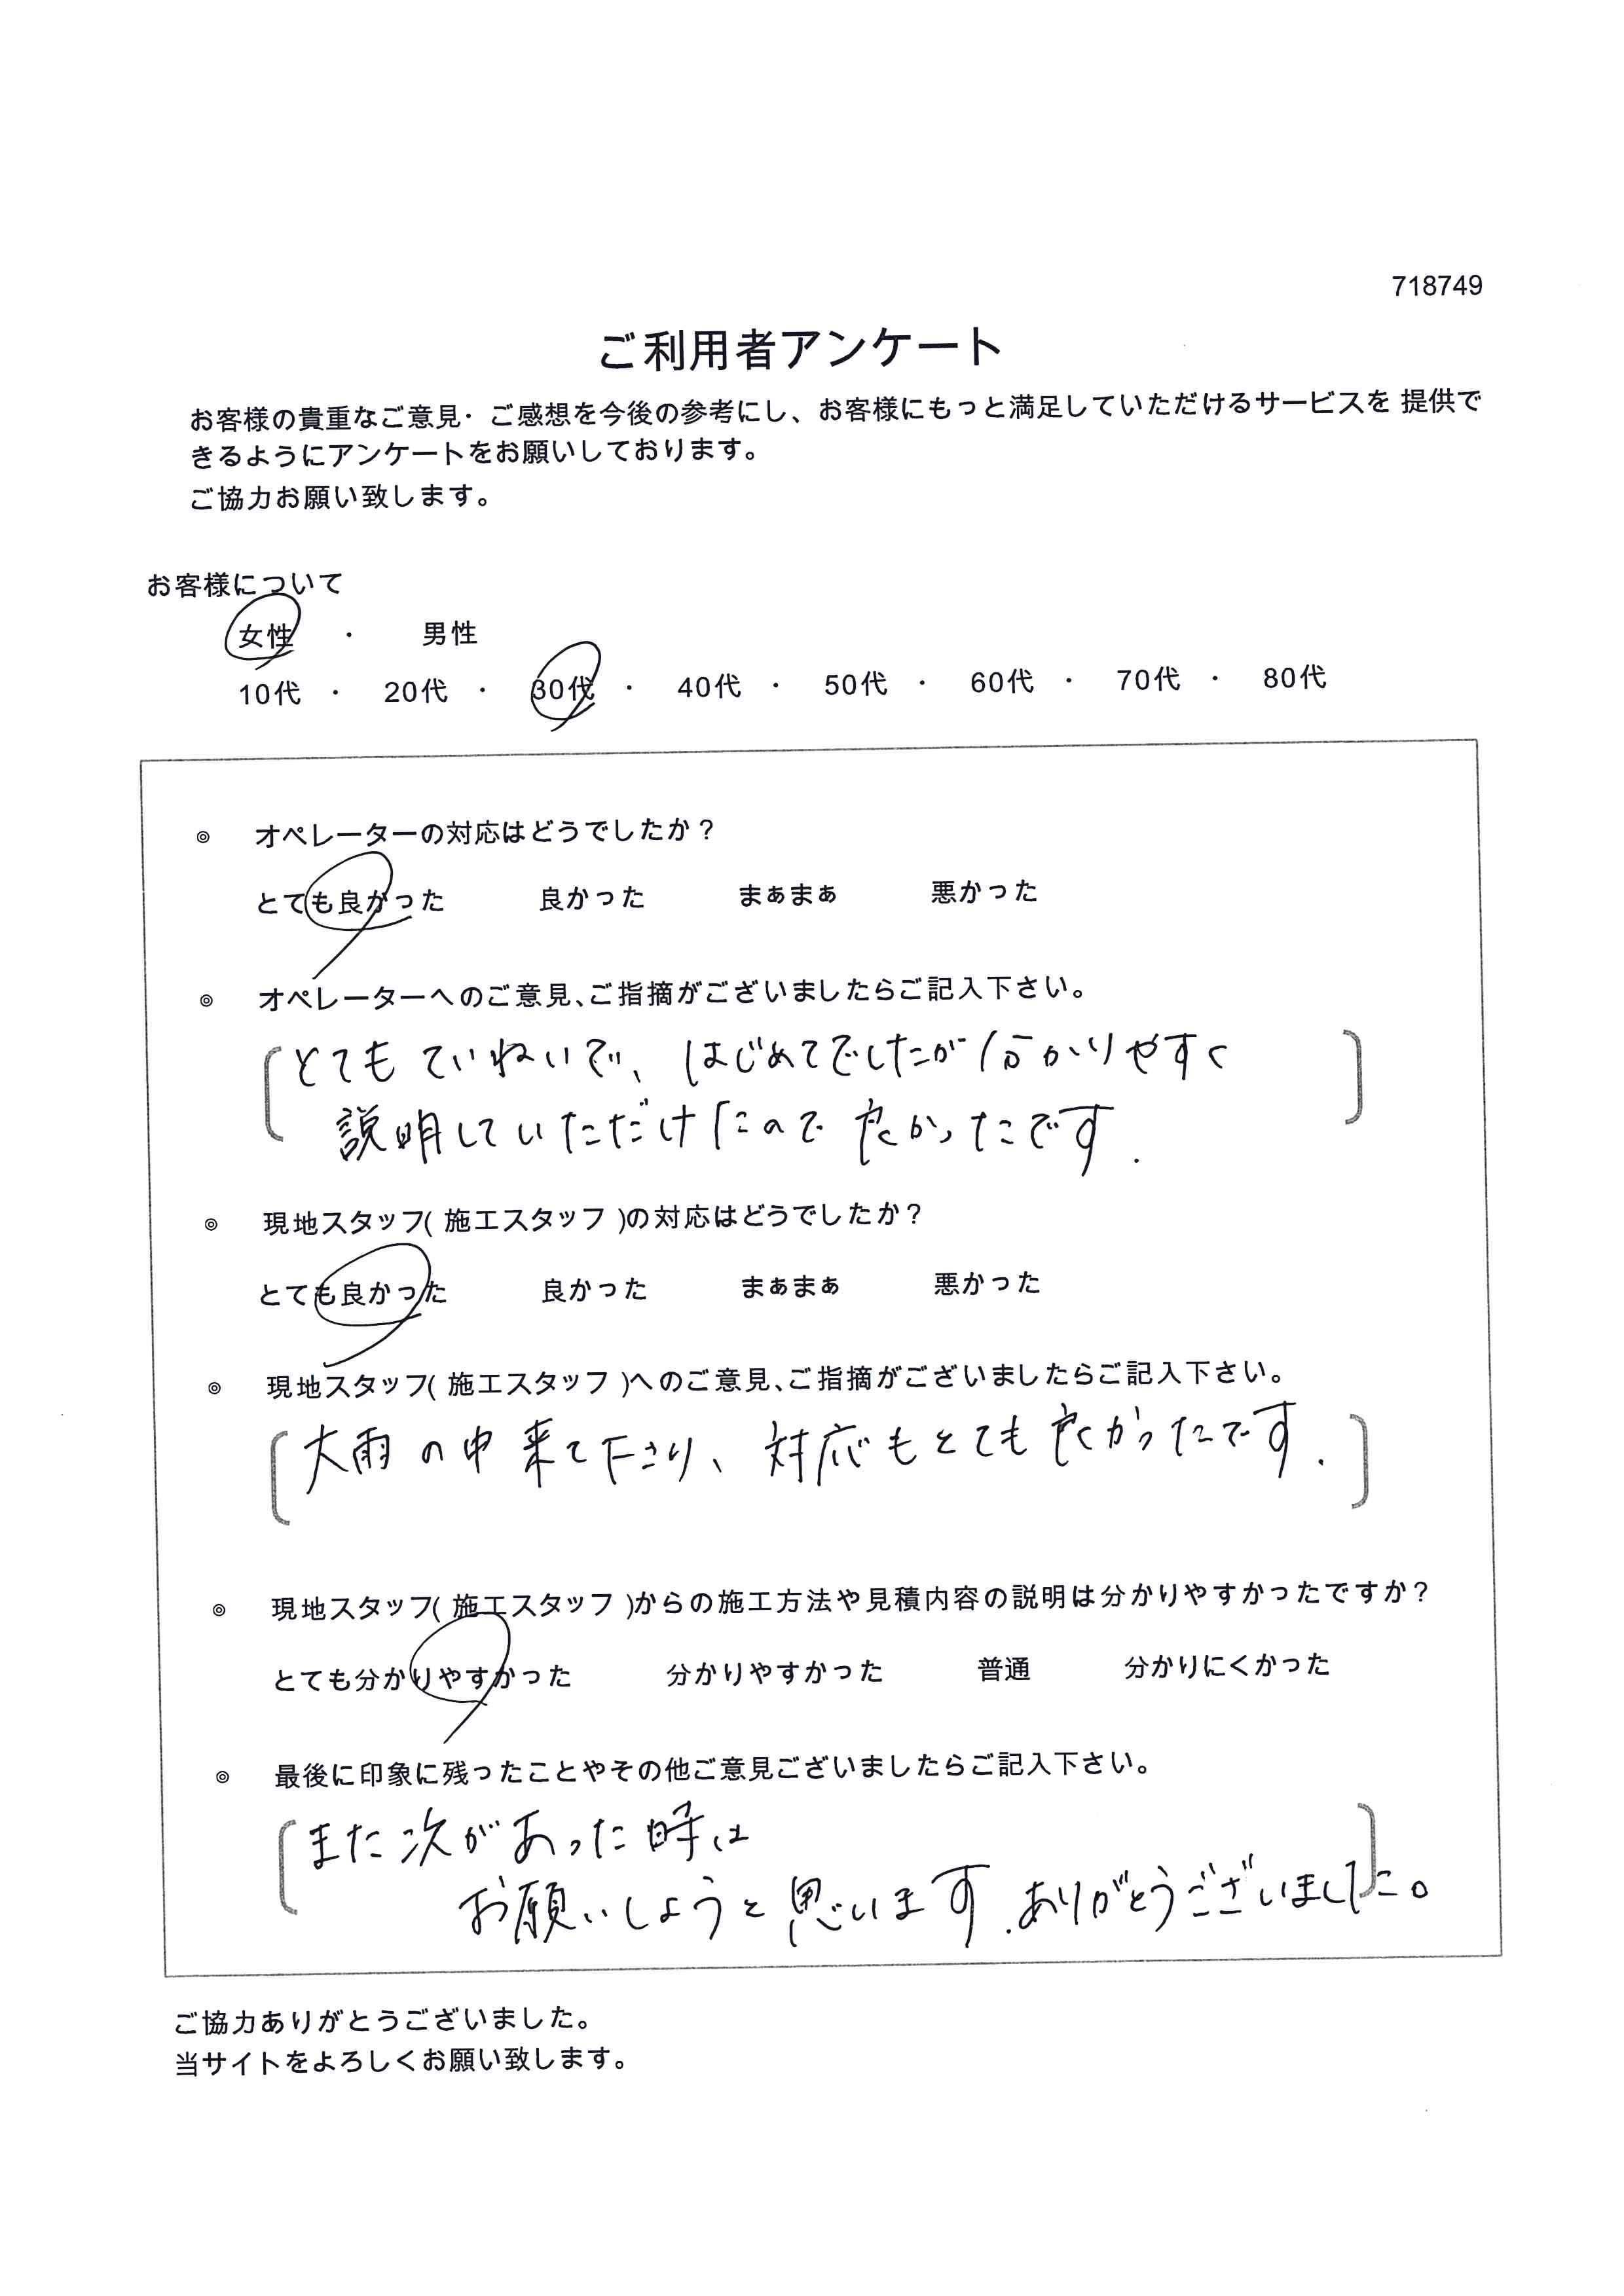 718749
ご利用者アンケート
お客様の貴重なご意見・ご感想を今後の参考にし、お客様にもっと満足していただけるサービスを 提供で
きるようにアンケートをお願いしております。
ご協力お願い致します。
お客様について
女性 ・ 男性
10代 ・ 20代 ・ 30代 ・ 40代 ・ 50代 ・ 60代 ・ 70代 ・ 80代
◎ オペレーターの対応はどうでしたか？
とても良かった 良かった まぁまぁ 悪かった
◎ オペレーターへのご意見、ご指摘がございましたらご記入下さい。
とてもていねいで、はじめてでしたが分かりやすく
説明していただけたので良かったです.
◎ 現地スタッフ( 施工スタッフ )の対応はどうでしたか？
とても良かった 良かった まぁまぁ 悪かった
◎ 現地スタッフ( 施工スタッフ )へのご意見、ご指摘がございましたらご記入下さい。
大雨の中来て下さり、対応もとても良かったです.
◎ 現地スタッフ( 施工スタッフ )からの施工方法や見積内容の説明は分かりやすかったですか？
とても分かりやすかった 分かりやすかった 普通 分かりにくかった
◎ 最後に印象に残ったことやその他ご意見ございましたらご記入下さい。
また次があった時は
お願いしようと思います.ありがとうございました。
ご協力ありがとうございました。
当サイトをよろしくお願い致します。